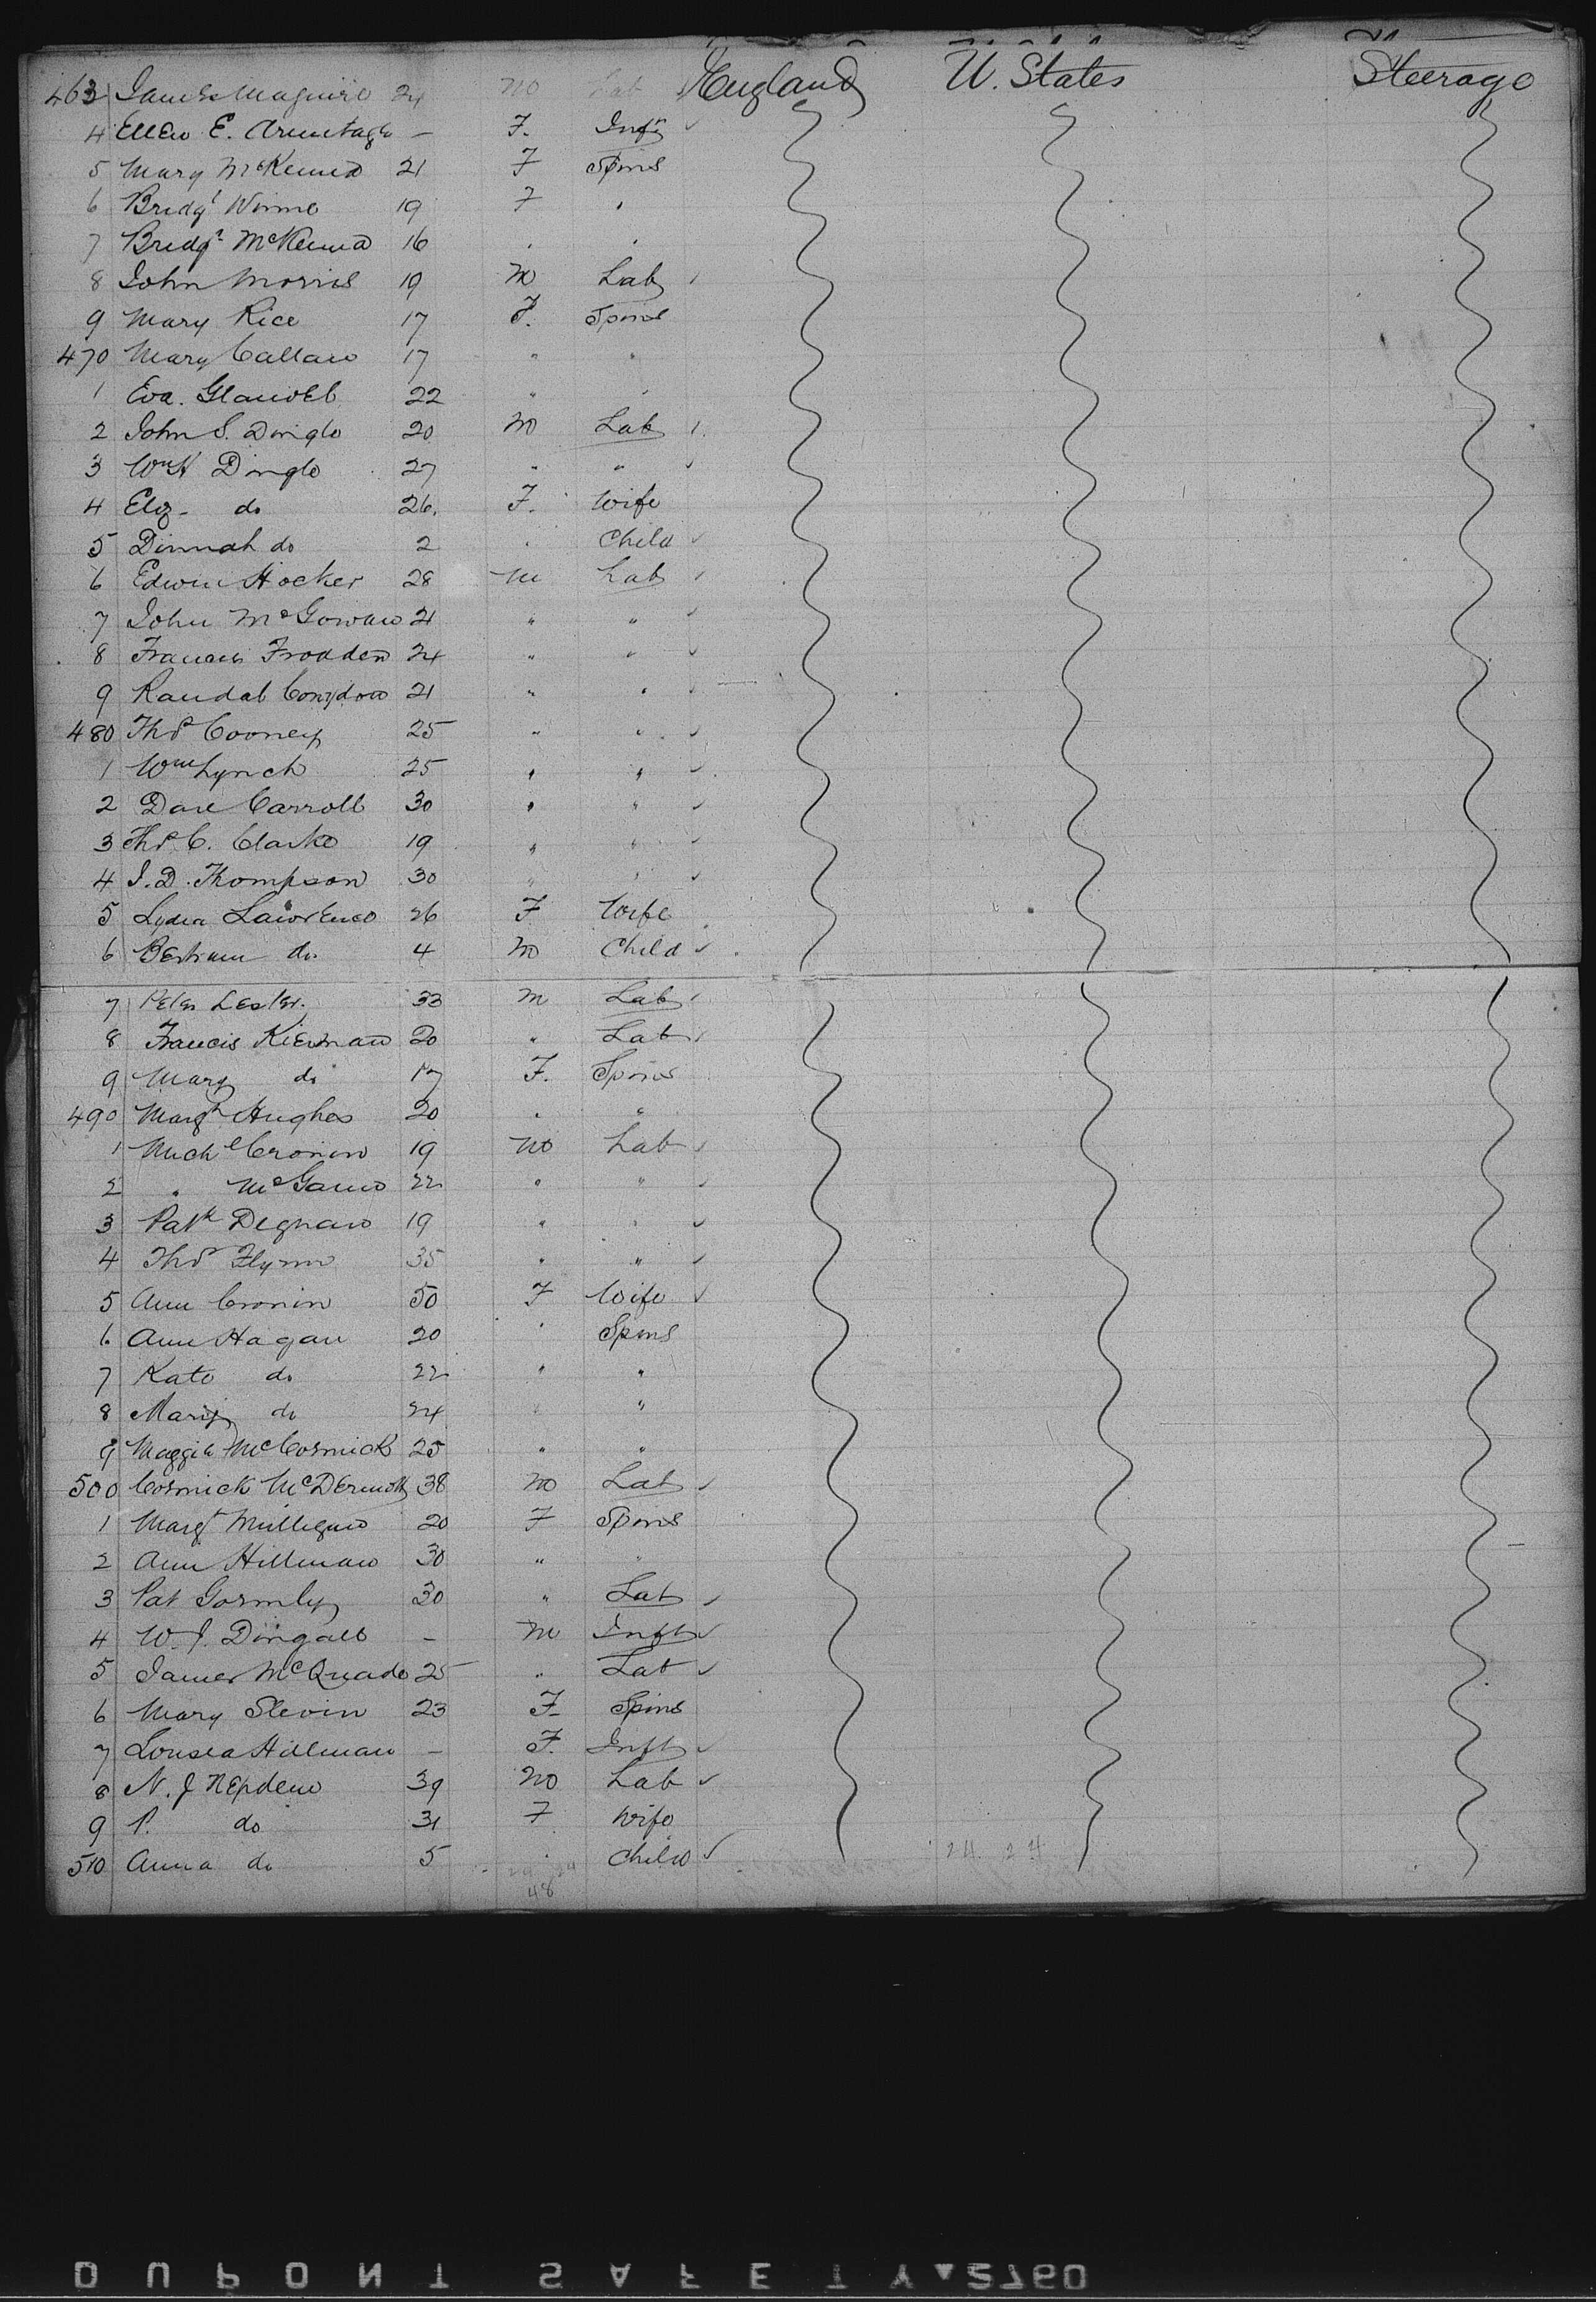 463 James Maguire 24 M Lab England U. States Steerage
4 Ellen E. Armitage — F. Inft
5 Mary McKenna 21 F Spins
6 Bridgt Winne 19 F "
7 Bridgt McKenna 16 " "
8 John Morris 19 M Lab
9 Mary Rice 17 F. Spins
470 Mary Callan 17 " "
1 Eva. 22 " "
2 John S. Dingle 20 M Lab
3 Wm H Dingle 27 " "
4 Eliz- do 26. F. Wife
5 Dinnah do 2 " Child
6 Edwin Hocker 28 M Lab
7 John McGowan 21 " "
8 Francis 24 " "
9 Randal 21 " "
480 Thos Cooney 25 " "
1 Wm Lynch 25 " "
2 Carroll 30 " "
3 Thos C. Clarke 19 " "
4 J. D. Thompson 30 " "
5 Lydia Lawrence 26 F Wife
6 Bertram do. 4 M Child
7 Peter Lester. 33 M Lab
8 Francis Kiernan 20 " Lab
9 Mary do 17 F. Spins
490 Margt Hughes 20 " "
1 Michl Cronin 19 M Lab
2 " McGann 22 " "
3 Patk Degnan 19 " "
4 Thos Flynn 35 " "
5 Ann Cronin 50 F Wife
6. Ann Hagan 20 " Spins
7 Kate do 22 " "
8 Mary do 24 " "
9 Maggie McCormick 25 " "
500 Cormick McDermott 38 M Lab
1 Margt Milligan 20 F Spins
2 Ann Hillman 30 " "
3 Pat Gormly 30 " Lab
4 W. J. Dingall — M Inft
5 James McQuade 25 " Lab
6 Mary Slevin 23 F Spins
7 Louisa Hillman — F. Inft
8 N. J 39 M Lab
9 P. do 31 F Wife
510 Anna do 5 " Child
24 24
48
DUPONT SAFETY▲2760